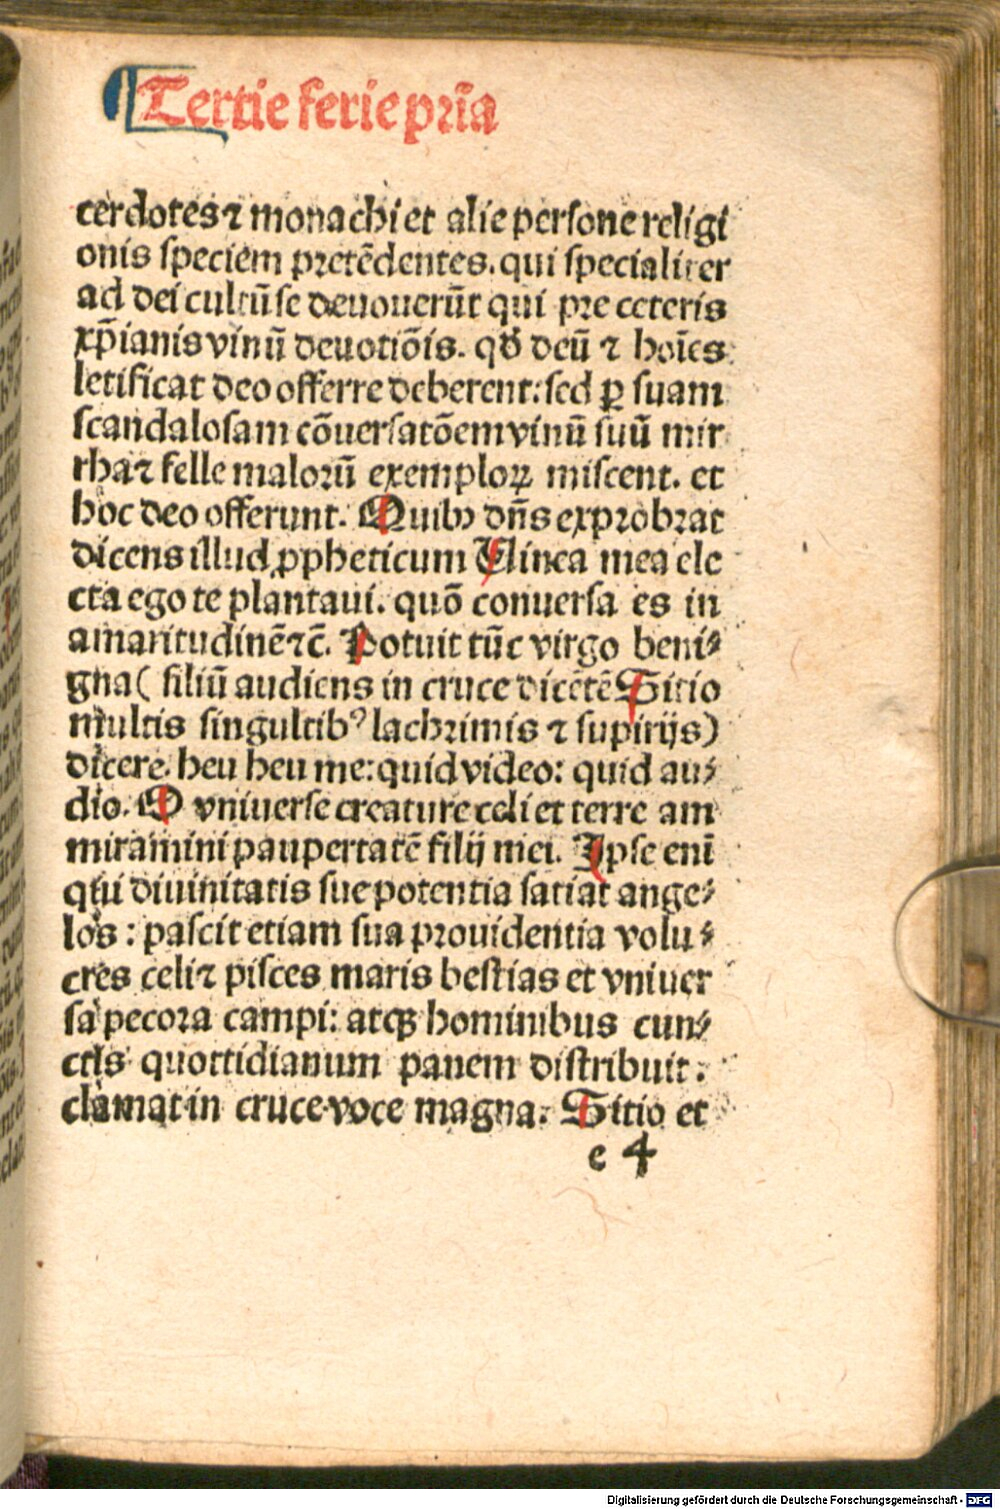 Tertie ferie pri̅a
cerdotes ⁊ monachi et alie persone religi
onis speciem prete̅dentes. qui specialiter
ad dei cultu̅ se deuoueru̅t qui pre ceteris
xp̅ianis vinu̅ deuotio̅is. qđ deu̅ ⁊ hoi̅es
letificat deo offerre deberent: sed ꝑ suam
scandalosam co̅uersato̅em vinu̅ suu̅ mir
rha ⁊ felle maloru̅ exemploꝝ miscent. et
hoc deo offerunt. Quibꝫ dn̅s exprobrat
dicens illud ꝓpheticum Uinea mea ele
cta ego te plantaui. quo̅ conuersa es in
amaritudine̅ ⁊c̅. Potuit tu̅c virgo beni⸗
gna ( filiu̅ audiens in cruce dice̅te̅ Sitio
multis singultibꝰ lachrimis ⁊ supirijs)
dicere. heu heu me: quid video: quid au⸗
dio. O vniuerse creature celi et terre am
miramini paupertate̅ filij mei. Ipse eni̅
qui diuinitatis sue potentia satiat ange⸗
los : pascit etiam sua prouidentia volu⸗
cres celi ⁊ pisces maris bestias et vniuer
sa pecora campi: atqꝫ hominibus cun⸗
ctis quottidianum panem distribuit.
clamat in cruce voce magna. Sitio et
e 4
Digitalisierung gefördert durch die Deutsche Forschungsgemeinschaft - DFG